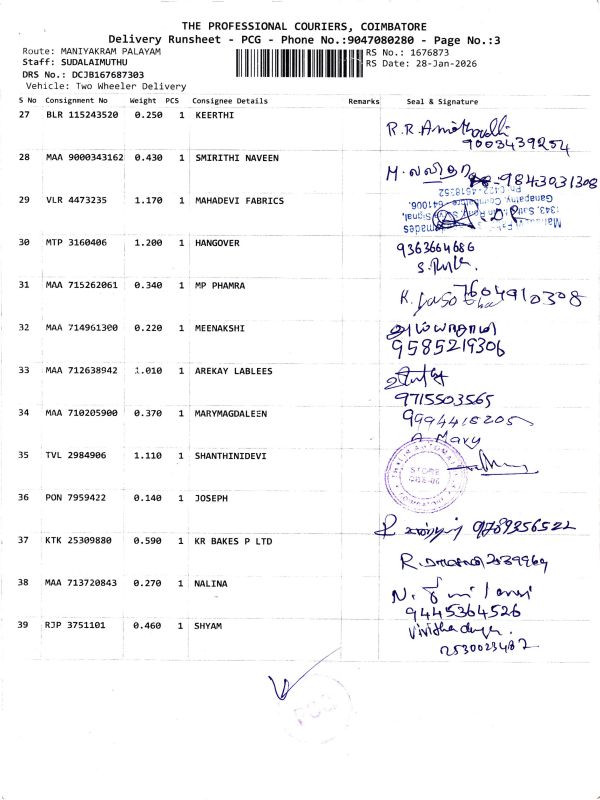 THE PROFESSIONAL COURIERS, COIMBATORE
Delivery Runsheet - PCG - Phone No.:9047080280 - Page No.:3
Route: MANIYAKRAM PALAYAM
RS No.: 1676873
Staff: SUDALAIMUTHU
RS Date: 28-Jan-2026
DRS No.: DCJB167687303
Vehicle: Two Wheeler Delivery
S No Consignment No Weight PCS Consignee Details Remarks Seal & Signature
27 BLR 115243520 0.250 1 KEERTHI
9003439254
28 MAA 9000343162 0.430 1 SMIRITHI NAVEEN
9843031308
29 VLR 4473235 1.170 1 MAHADEVI FABRICS
Ph: 0422-4518352
Ganapathy, Coimbatore - 641006.
30 MTP 3160406 1.200 1 HANGOVER
9363664686
31 MAA 715262061 0.340 1 MP PHAMRA
7604910308
32 MAA 714961300 0.220 1 MEENAKSHI
9585219306
33 MAA 712638942 1.010 1 AREKAY LABLEES
9715503565
34 MAA 710205900 0.370 1 MARYMAGDALEEN
9994416205
A. Mary
35 TVL 2984906 1.110 1 SHANTHINIDEVI
STORE
36 PON 7959422 0.140 1 JOSEPH
9789356522
37 KTK 25309880 0.590 1 KR BAKES P LTD
38 MAA 713720843 0.270 1 NALINA
9445364526
39 RJP 3751101 0.460 1 SHYAM
2530023482
PCG